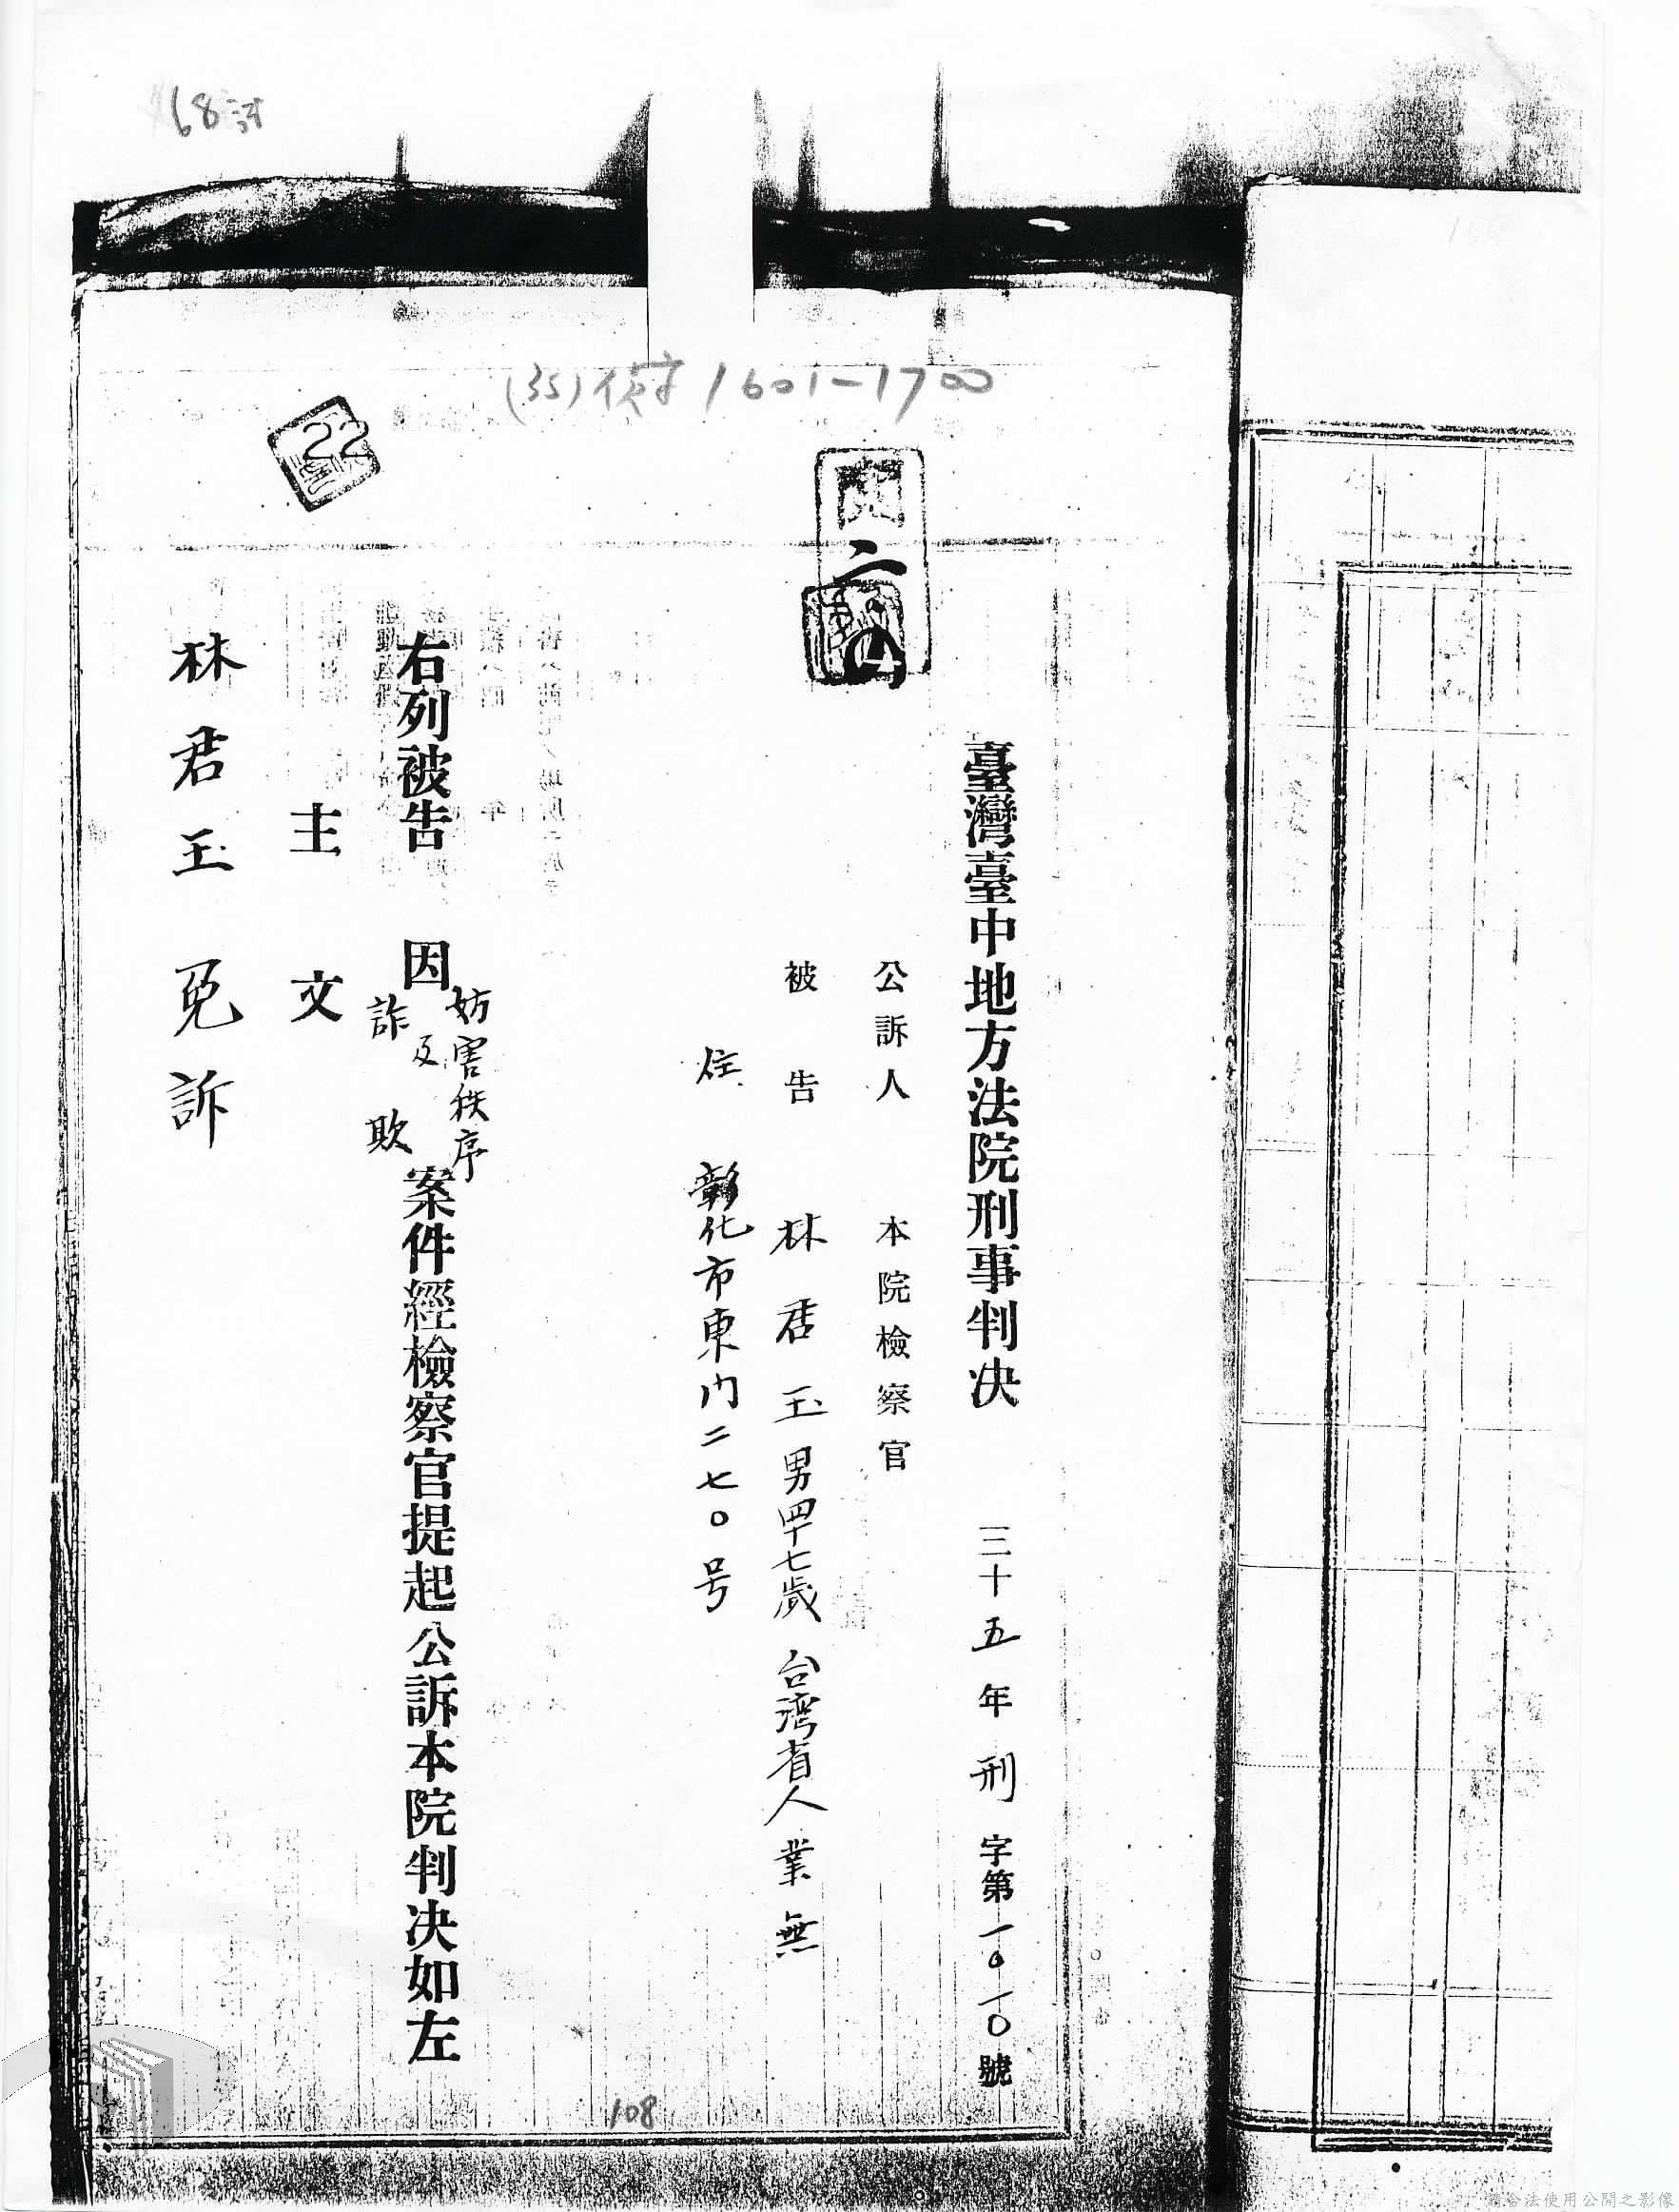 68訴
(35)偵字1601-1700
22
二
臺灣臺中地方法院刑事判决 三十五年刑字第一〇一〇號
公訴人 本院檢察官
被告 林君玉 男 四十七歲 台湾省人 業無
住 彰化市東门二七〇号
右列被告 因妨害秩序及詐欺案件經檢察官提起公訴本院判决如左
主文
林君玉免訴
108
合法使用公開之影像